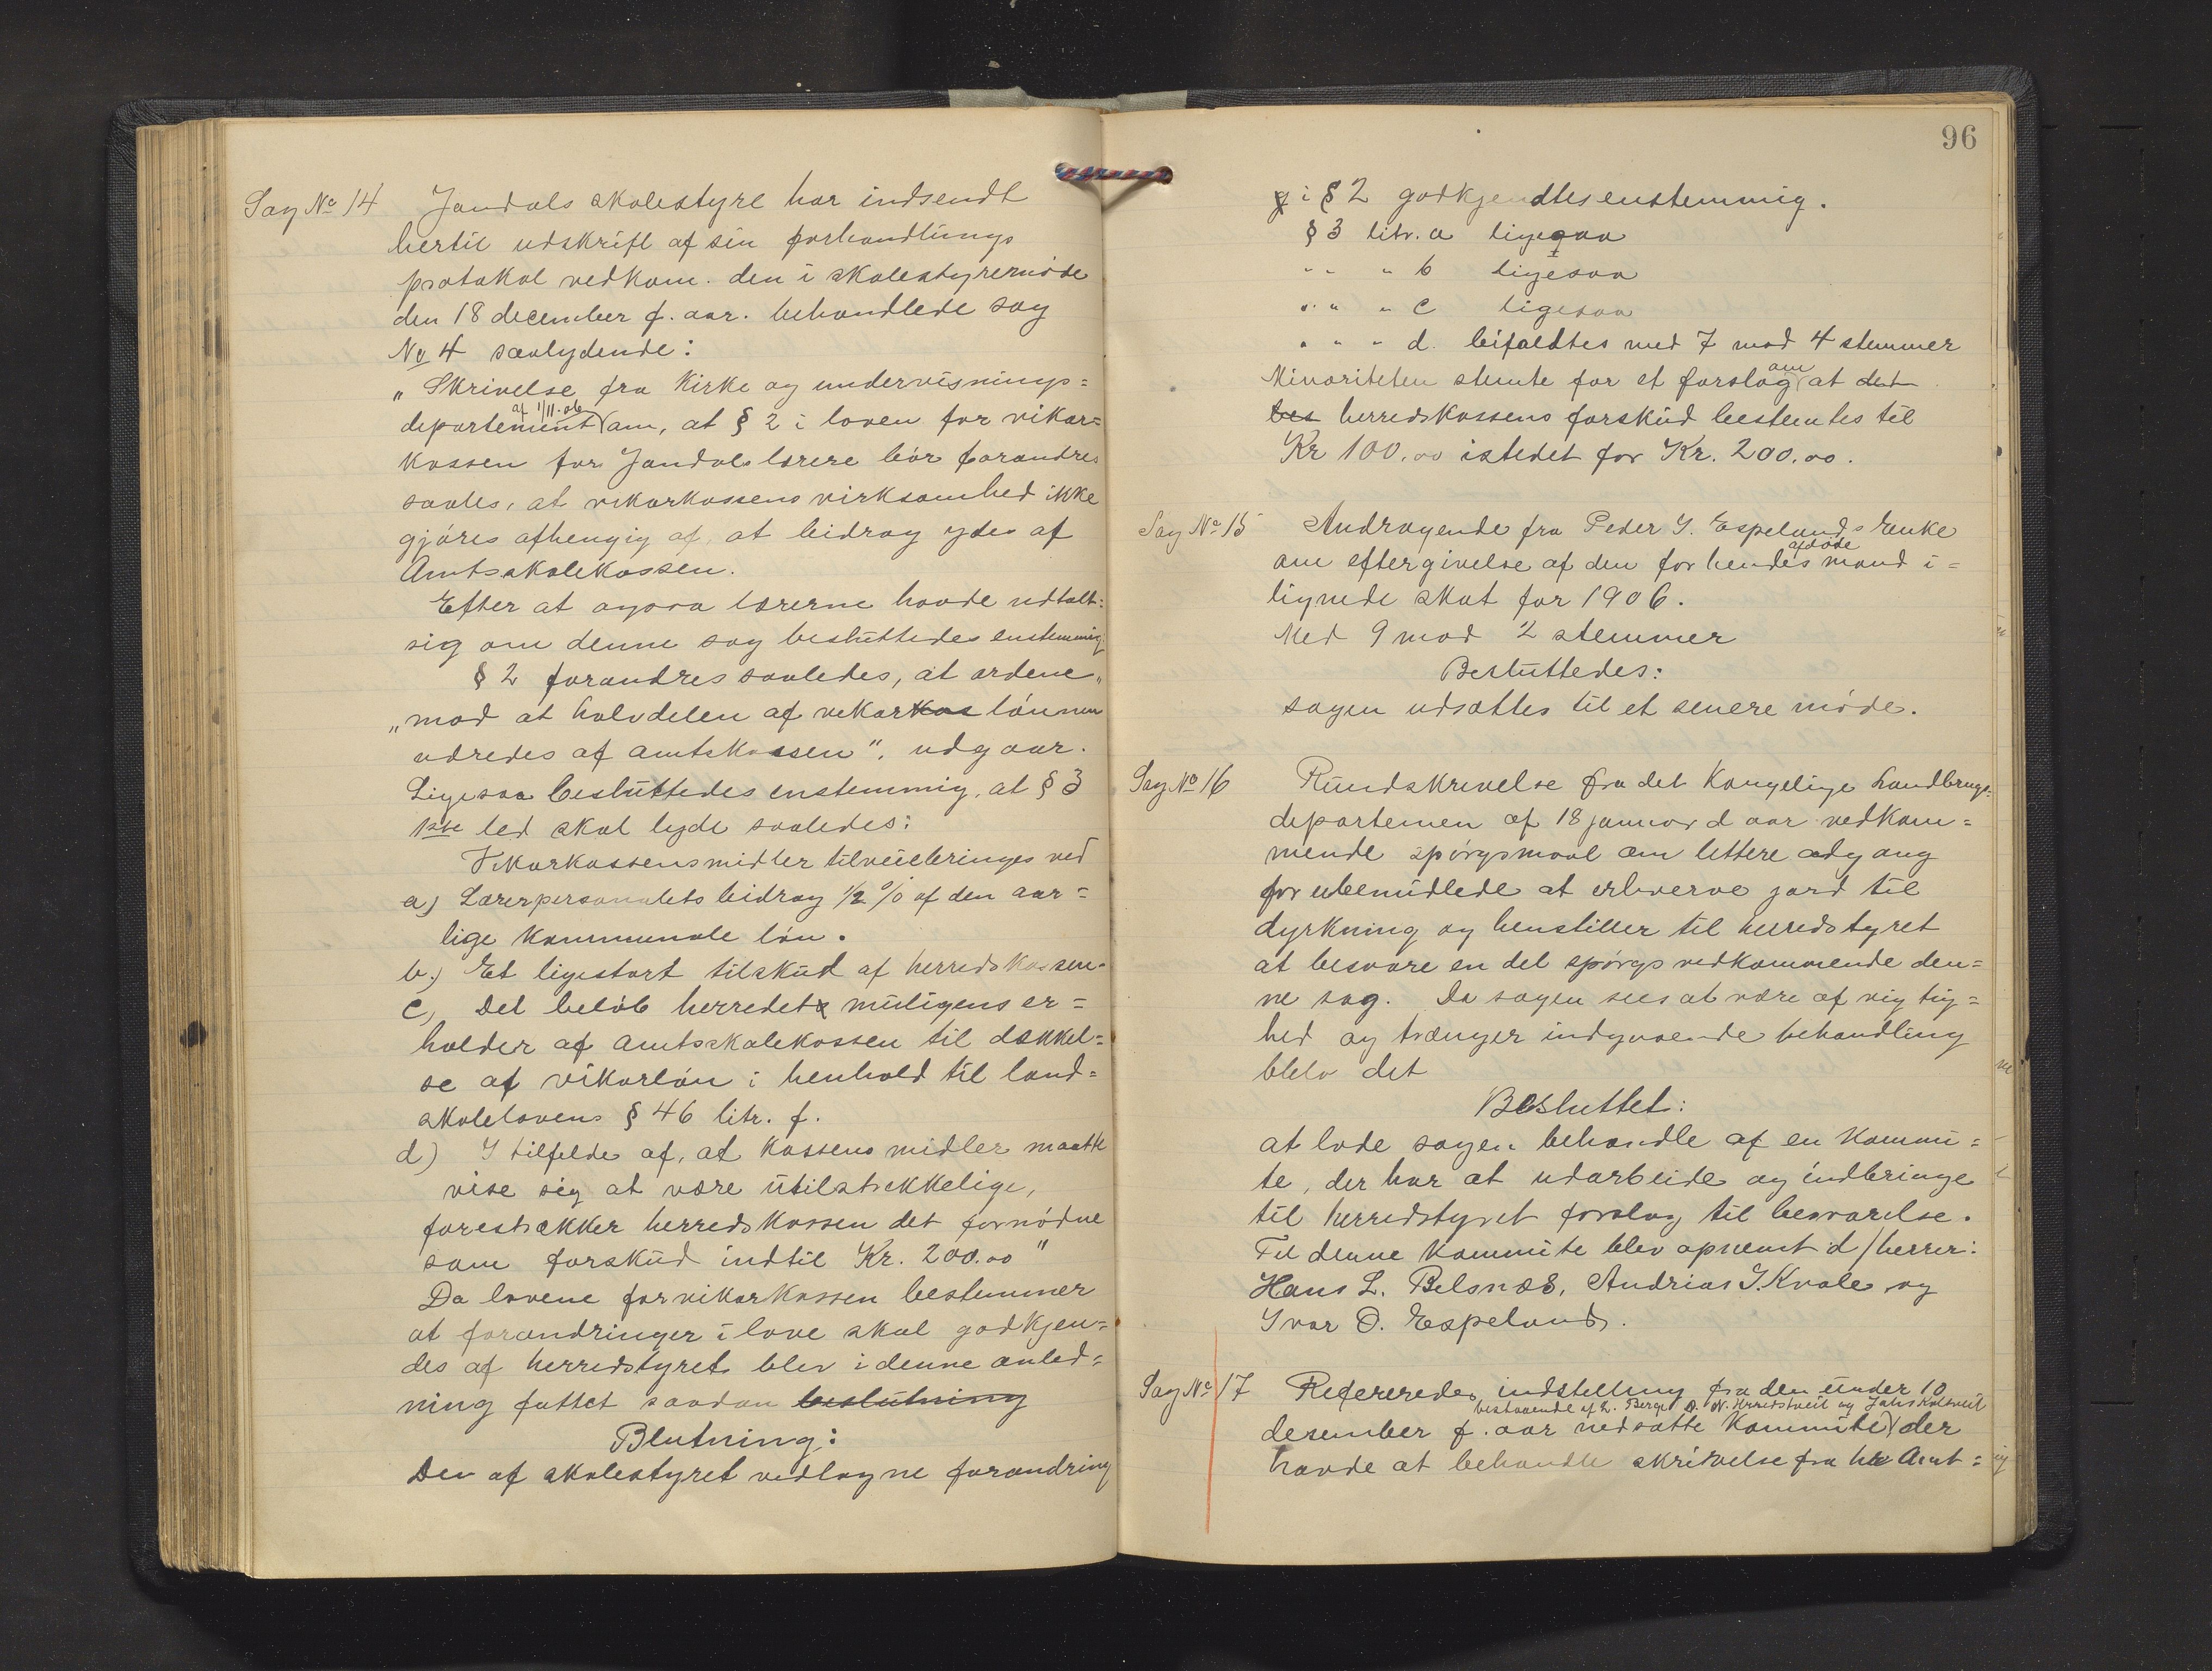 Sag No 14 Jondals skolestyre har indsendt
hertil udskrift af sin forhandlings
protokol vedkom. den i skolestyremöde
den 18 december f. aar. behandlede sag
No 4 saalydende:
„Skrivelse fra Kirke og undervisnings=
af 1/11.06
departement om, at § 2 i loven for vikar=
kassen for Jondals lærere bör forandres
saales, at vikarkassens virksomhed ikke
gjöres afhengig af, at bidrag ydes af
Amtsskolekassen.
Efter at ogsaa lærerne havde udtalt
sig om denne sag besluttedes enstemmig:
§ 2 forandres saaledes, at ordene„
„mod at halvdelen af vikarkas lönnen
udredes af amtskassen“, udgaar.
Ligesaa besluttedes enstemmig, at § 3
1ste led skal lyde saaledes:
Vikarkassens midler tilveiebringes ved
a) Lærerpersonalets bidrag 1/2 % af den aar=
lige kommunale lön.
b.) Et ligestort tilskud af herredskassen.
c) Det belöb herredets muligens er=
holder af amtsskolekassen til dækkel=
se af vikarlön i henhold til land=
skolelovens § 46 litr. f.
d) I tilfelde af, at kassens midler maatte
vise sig at være utilstrekkelige,
forestrækker herredskassen det fornödne
som forskud indtil Kr. 200.00“
Da lovene for vikarkassen bestemmer
at forandringer i love skal godkjen=
des af herredstyret blev i denne anled=
ning fattet saadan beslutning
Blutning:
Den af skolestyret vedtagne forandring
96
g i § 2 godkjendtes enstemmig.
§ 3 litr. a ligesaa
" " " b ligesaa
" " " c ligesaa
" " " d. bifaldtes med 7 mod 4 stemmer
om
Minoriteten stemte for et forslag at det
bes herredskassens forskud bestemtes til
Kr 100.00 istedet for Kr. 200.00.
Sag No 15 Andragende fra Peder J. Espelands Enke
afdöde
om eftergivelse af den for hendes mand i=
lignede skat for 1906.
Med 9 mod 2 stemmer
Besluttedes:
sagen udsættes til et senere möde.
Sag No 16 Rundskrivelse fra det Kongelige Landbrugs=
departemen af 18 januar d aar vedkom=
mende spörgsmaal om lettere adgang
for ubemidlede at erhverve jord til
dyrkning og henstiller til herredstyret
at besvare en del spörgs vedkommende den=
ne sag. Da sagen sees at være af vigtig=
hed og trænger indgaaende behandling
blev det
Besluttet:
at lade sagen behandle af en Kommi=
te, der har at udarbeide og indbringe
til herredstyret forslag til besvarelse.
Til denne Kommite blev opnevnt d/herrer:
Hans L. Belsnæs, Andrias J. Kvale og
Ivar O. Espeland.
Sag No 17 Refereredes indstilling fra den under 10
bestaaende af L. Berge O. N. Herredstveit og Johs Kolltveit
desember f. aar nedsatte Kommite der
havde at behandle skrivelse fra hr Amt=